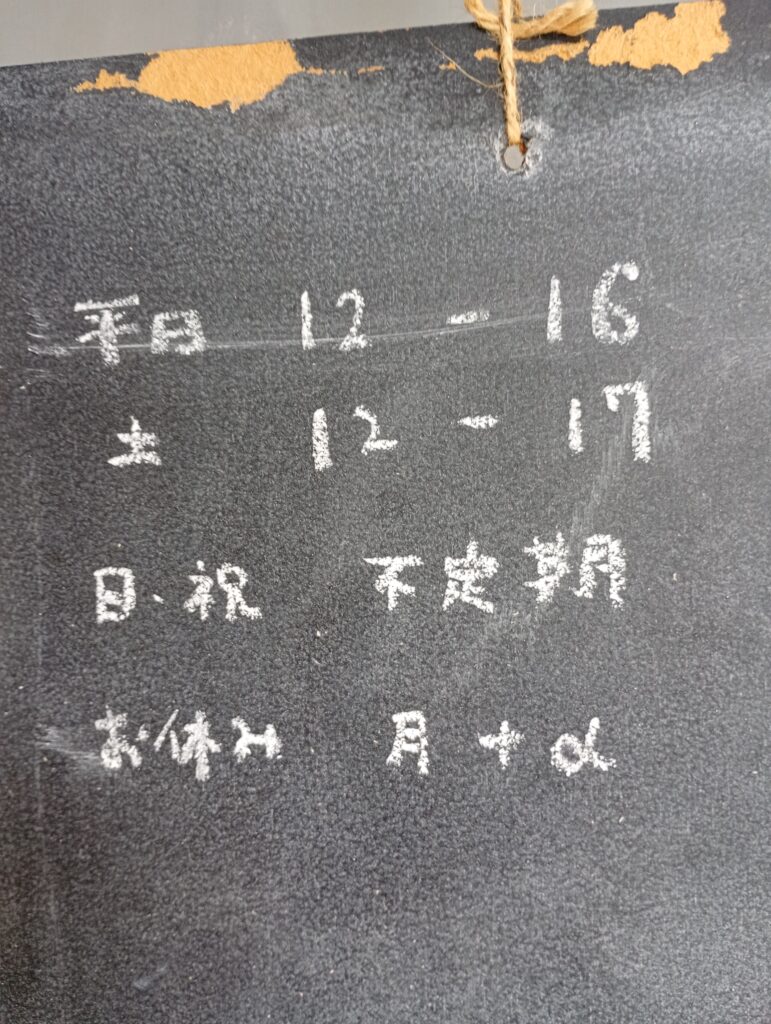 平日 12 - 16
土 12 - 17
日・祝 不定期
お休み 月 + α